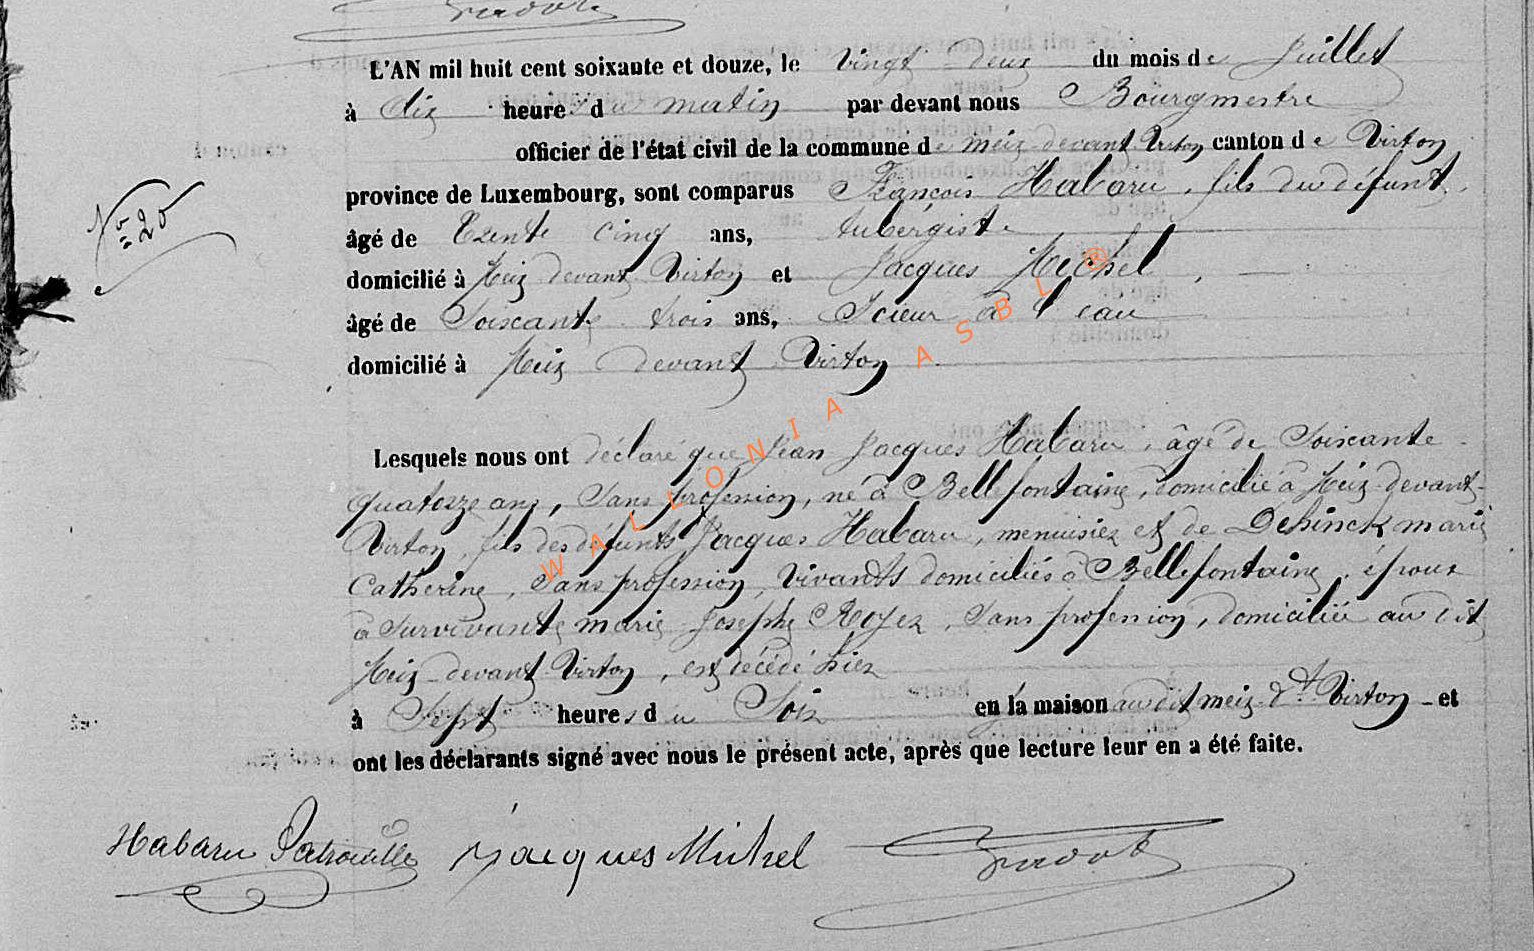 L'AN mil huit cent soixante et douze, le vingt deux du mois de Juillet
à dix heure du matin par devant nous Bourgmestre
officier de l'état civil de la commune de meix devant Virton canton de Virton
N° 20
province de Luxembourg, sont comparus François Habaru, fils du défunt,
âgé de Trente cinq ans, Aubergiste
domicilié à Meix devant Virton et Jacques Michel,
âgé de Soixante trois ans, Scieur à l'eau
domicilié à Meix devant Virton
Lesquels nous ont déclaré que Jean Jacques Habaru, âgé de Soixante
quatorze ans, Sans profession, né à Bellefontaine, domicilié à Meix-devant-
Virton, fils des défunts Jacques Habaru, menuisier et de Dehinck marie
Catherine, Sans profession, Vivants domiciliés à Bellefontaine, époux
à Survivante marie Josephe Royer, Sans profession, domiciliée au dit
Meix-devant Virton, est décédé hier
à Sept heures du Soir en la maison au dit meix-dt Virton - et
ont les déclarants signé avec nous le présent acte, après que lecture leur en a été faite.
Habaru Jacques Michel
WALLONIA ASBL ®